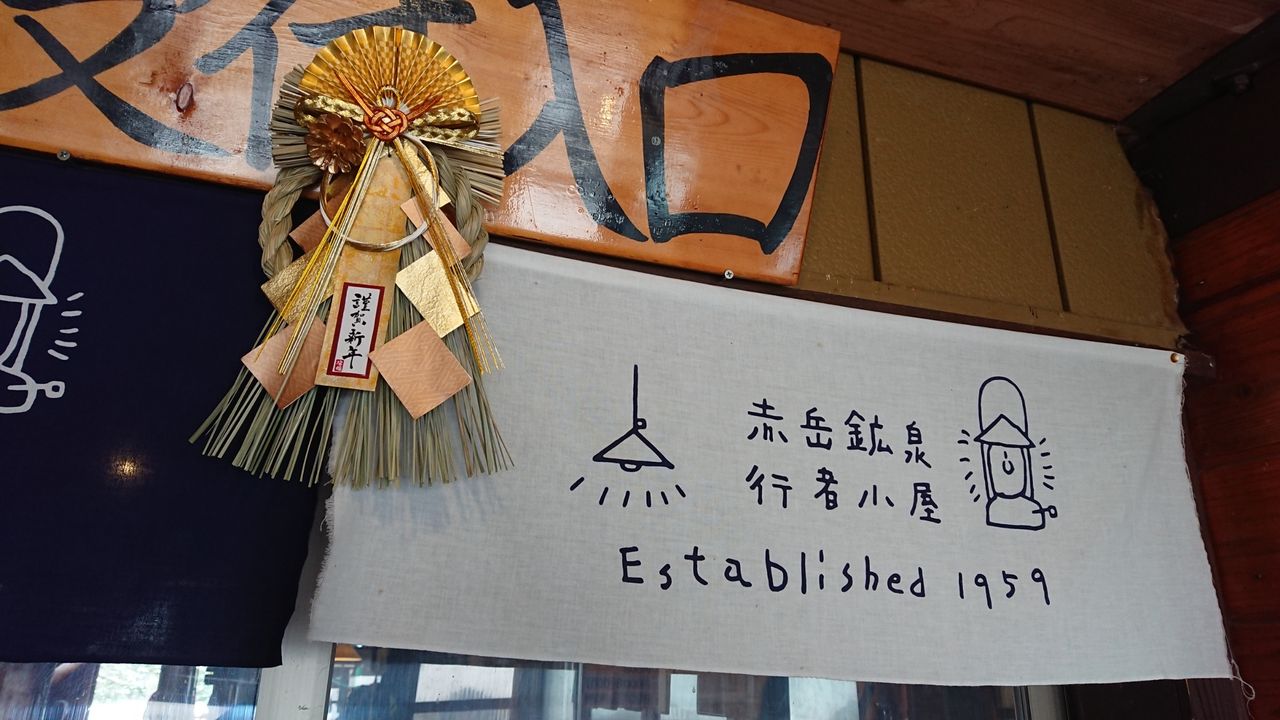 受付入口
謹賀新年
赤岳鉱泉
行者小屋
Established 1959